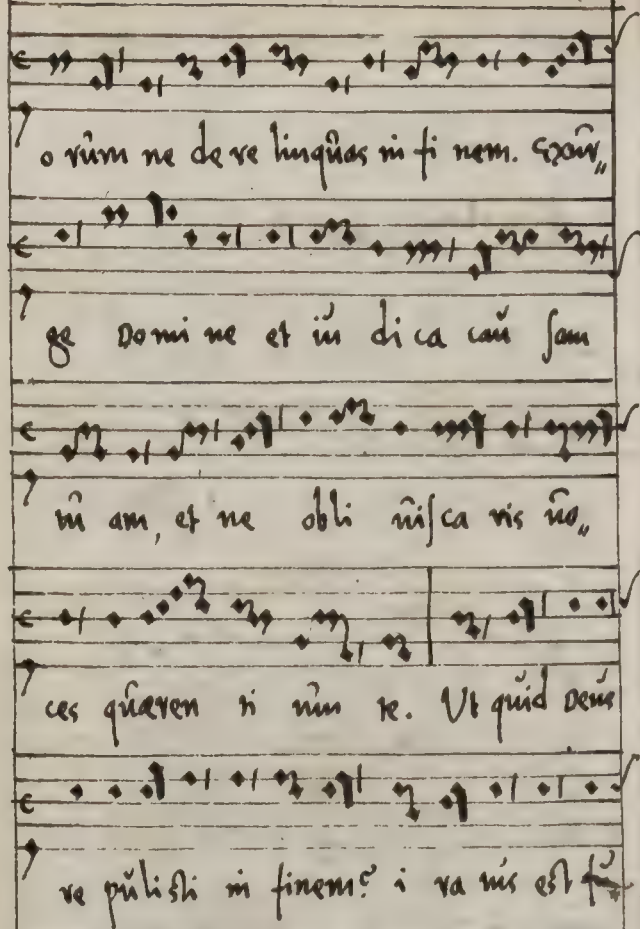 o rum ne de re linquas in fi nem. Exsur„
ge Domi ne et iu di ca cau sam
tu am, et ne obli uisca ris uo„
ces quæren ti um te. Ut quid Deus
re pulisti in finem? i ra tus est fu